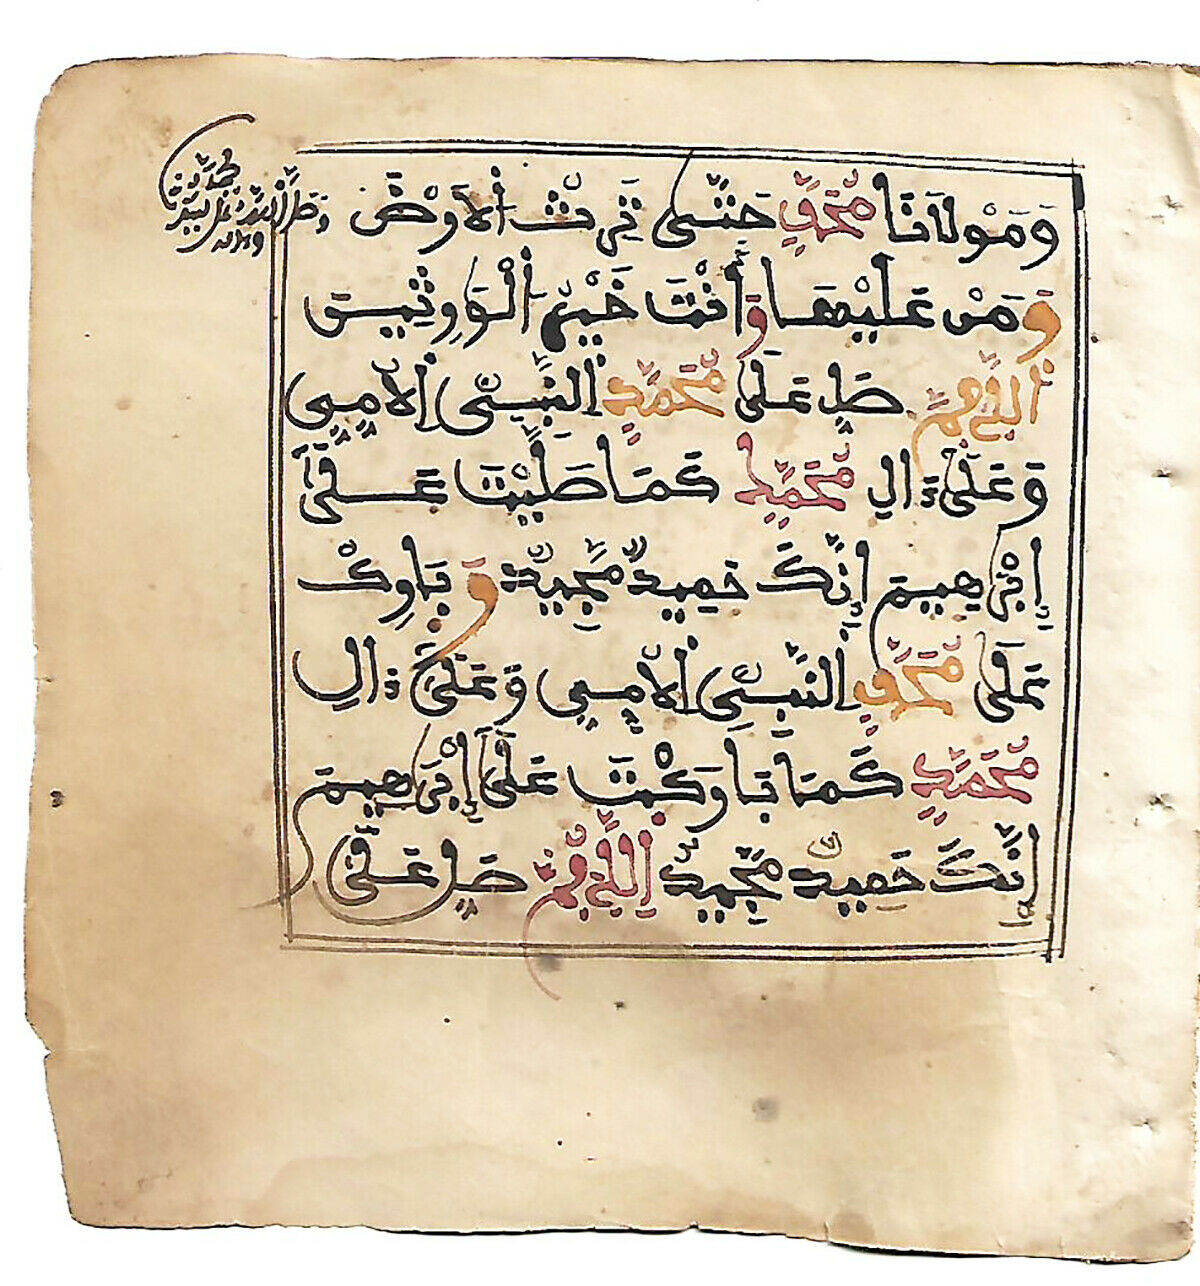 وَمَوْلَانَا مُحَمَّدٍ حَتَّى تَرِثَ الْأَرْضَ
وَمَنْ عَلَيْهَا وَأَنْتَ خَيْرُ الْوَارِثِينَ
اللَّهُمَّ صَلِّ عَلَى مُحَمَّدٍ النَّبِيِّ الْأُمِّيِّ
وَعَلَى ءَالِ مُحَمَّدٍ كَمَا صَلَّيْتَ عَلَى
إِبْرَهِيمَ إِنَّكَ حَمِيدٌ مَجِيدٌ وَبَارِكْ
عَلَى مُحَمَّدٍ النَّبِيِّ الْأُمِّيِّ وَعَلَى ءَالِ
مُحَمَّدٍ كَمَا بَارَكْتَ عَلَى إِبْرَهِيمَ
إِنَّكَ حَمِيدٌ مَجِيدٌ اللَّهُمَّ صَلِّ عَلَى